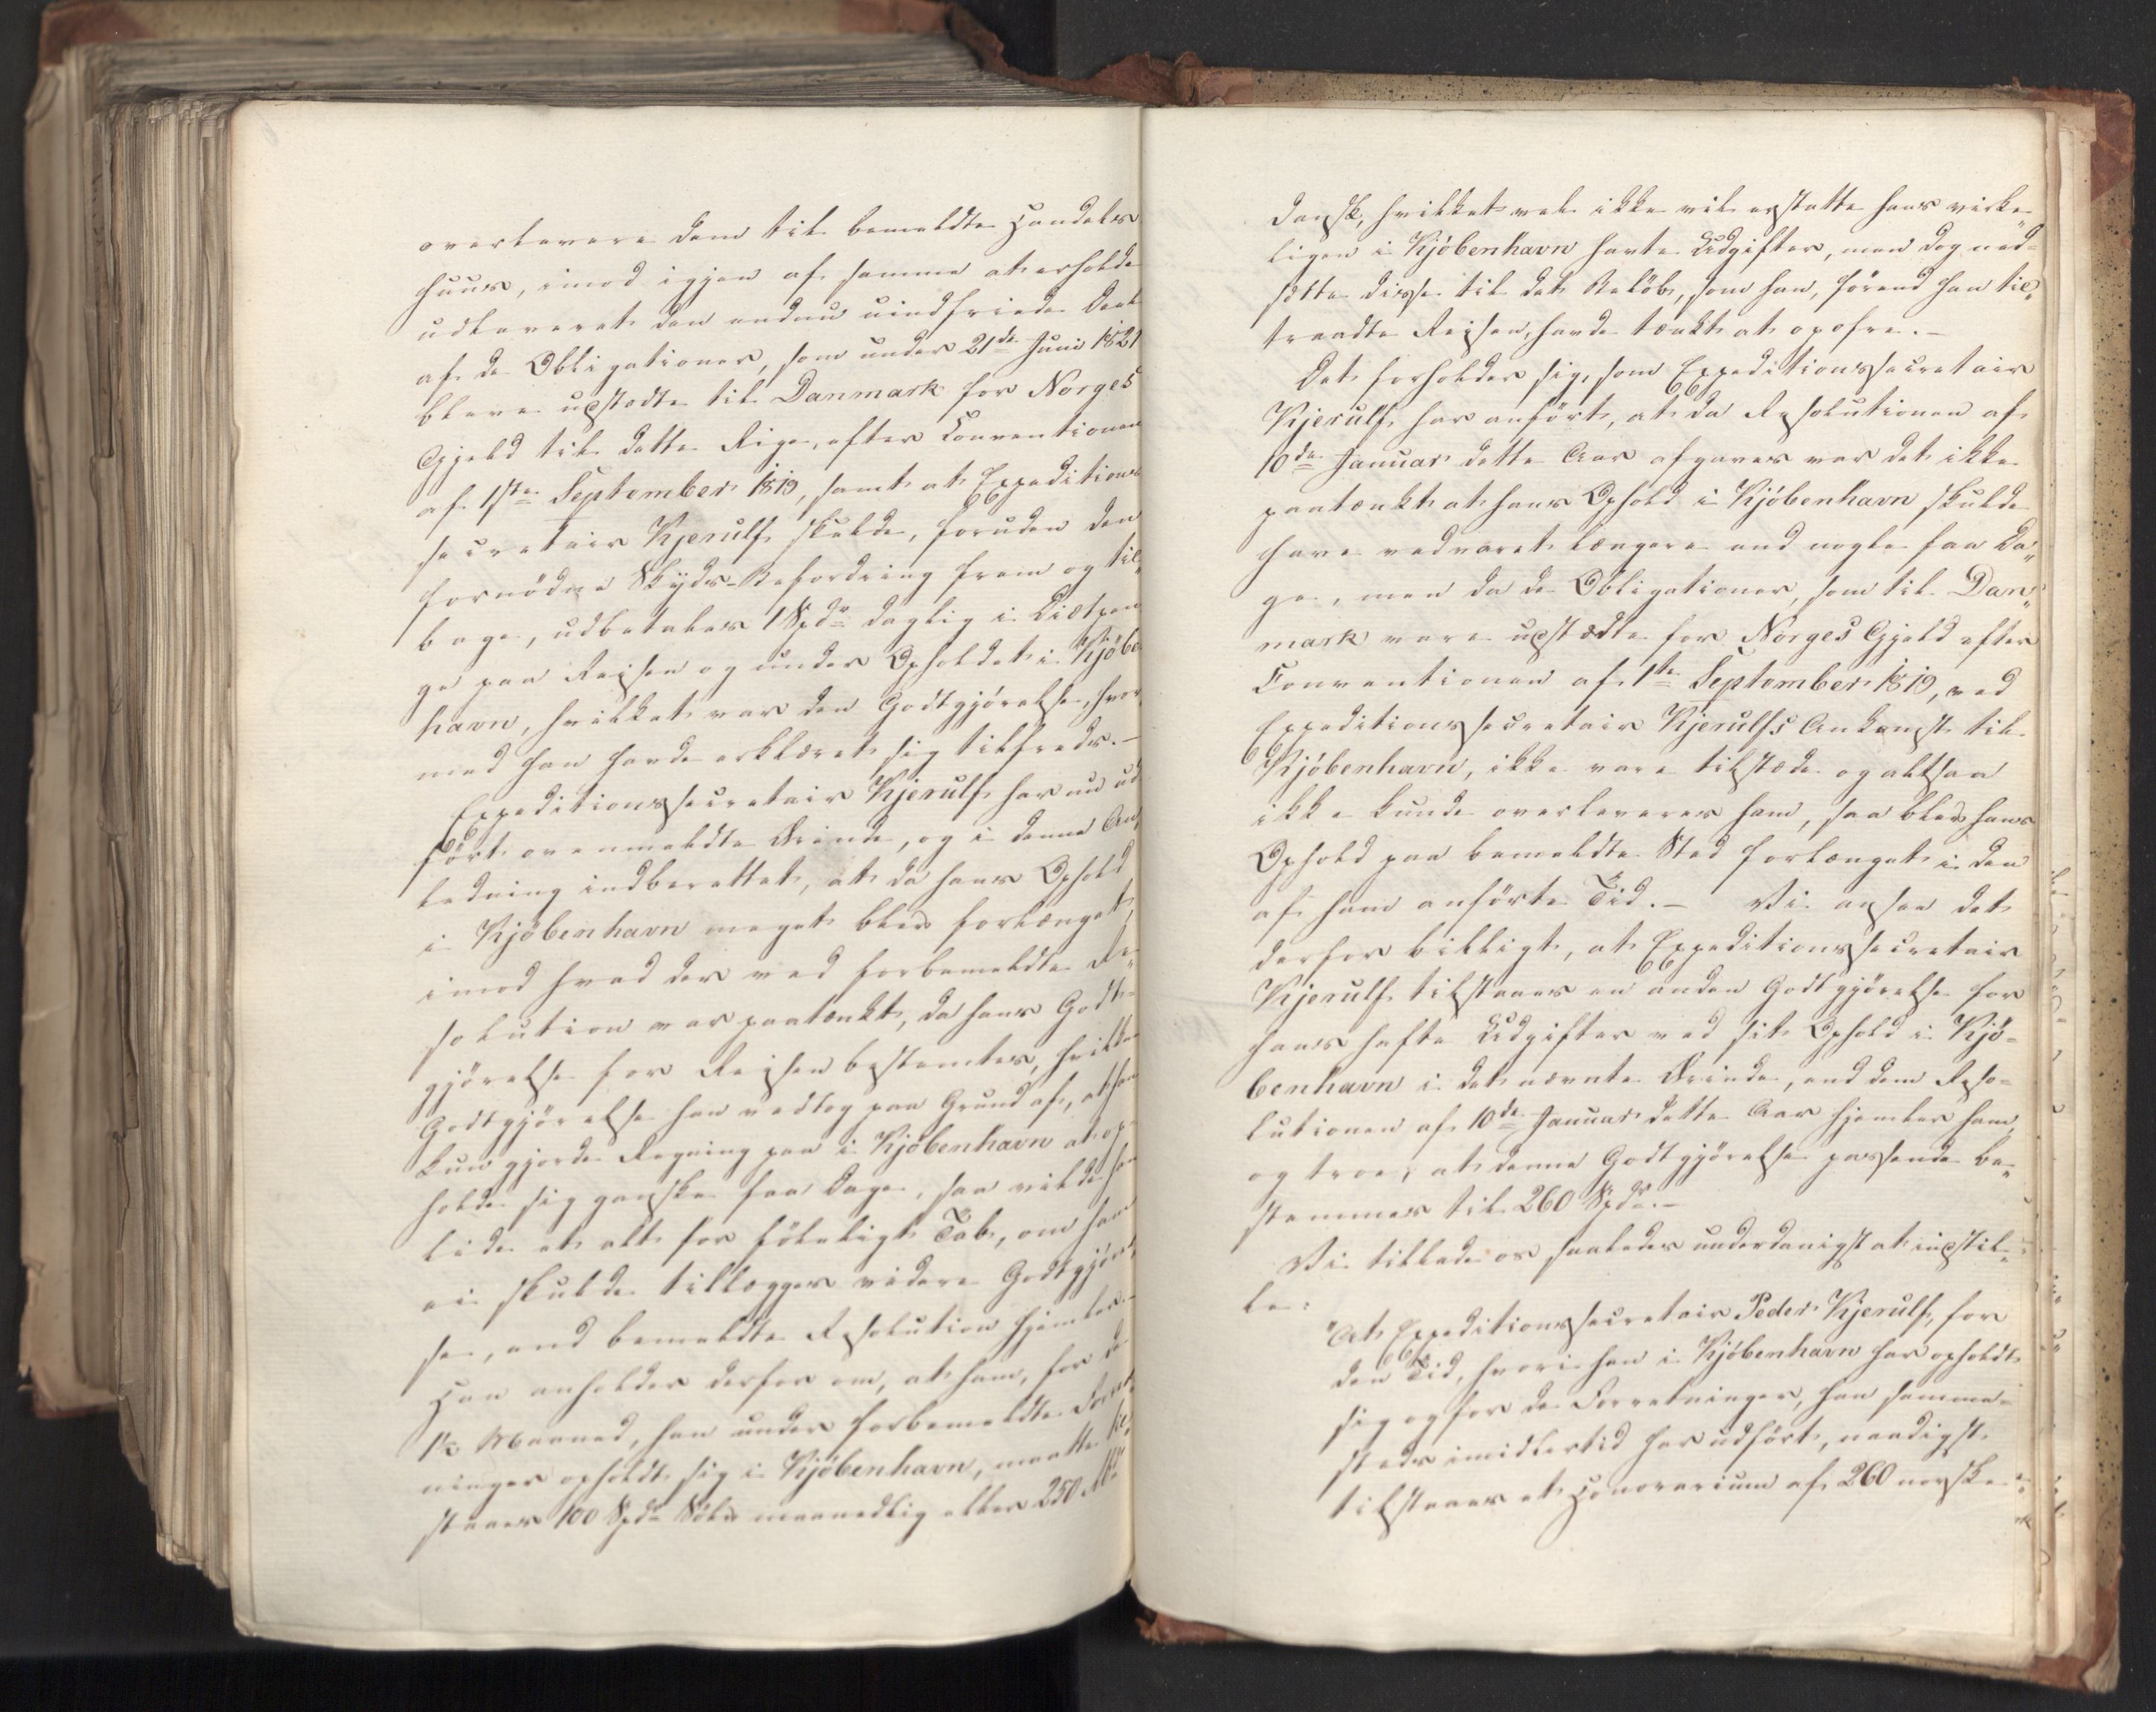 overlevere dem til bemeldte Handels
huus, imod igjen af samme at erholde
udleveret den endnu uindfriede Deel
af de Obligationer, som under 21de Juni 1821
bleve udstædte til Danmark for Norges
Gjeld til dette Rige, efter Conventionen
af 1ste September 1819, samt at Expeditions
secretair Kjerulf skulde, foruden den
fornødne Skyds-Befordring frem og til„
bage, udbetales 1 Spdr daglig i Diætpen
ge paa Reisen og under Opholdet i Kjöbe
havn, hvilket var den Godtgjörelse, hvor„
med han havde erklæret sig tilfreds.-
Expeditionssecretair Kjerulf har nu ud
fört ovenmeldte Ærinde, og i denne An„
ledning indberettet, at da hans Ophold
i Kjöbenhavn meget blev forlænget
imod hvad der ved forbemeldte Re„
solution var paatænkt, da hans Godt-
gjörelse for Reisen bestemtes, hvilken
Godtgjörelse han vedtog paa Grund af, at han
kun gjorde Regning paa i Kjöbenhavn at op
holde sig ganske faa Dage, saa vilde han
lide et alt for föleligt Tab, om ham
ei skulde tillægges videre Godtgjörel
se, end bemeldte Resolution hjemler.-
Han anholder derfor om, at ham, for de
1½ Maaned, han under forbemeldte Forret
ninger opholdt sig i Kjöbenhavn, maatte til„
staaes 100 Spdr Sölv maanedlig eller 250 Rbdr
dansk, hvilket vel ikke vil erstatte hans virke„
ligen i Kjöbenhavn havte Udgifter, men dog ned-
sætte disse til det Belöb, som han, förend han til„
traadte Reisen, havde tænkt at opofre.-
Det forholder sig, som Expeditionssecretair
Kjerulf har anfört, at da Resolutionen af
10de Januar dette Aar afgaves var det ikke
paatænkt at hans Ophold i Kjöbenhavn skulde
have vedvaret længere end nogle faa Da„
ge, men da de Obligationer, som til Dan„
mark vare udstædte for Norges Gjeld efter
Conventionen af 1ste September 1819, ved
Expeditionssecretair Kjerulfs Ankomst til
Kjöbenhavn, ikke vare tilstede og altsaa
ikke kunde overleveres ham, saa blev hans
Ophold paa bemeldte Sted forlænget i den
af ham anförte Tid.- Vi ansee det
derfor billigt, at Expeditionssecretair
Kjerulf tilstaaes en anden Godtgjörelse for
hans hafte Udgifter ved sit Ophold i Kjö-
benhavn i det nævnte Ærinde, end dem Reso-
lutionen af 10de Januar dette Aar hjemler ham,
og troe, at denne Godtgjörelse passende be„
stemmes til 260 Spdr.-
Vi tillade os saaledes underdanigst at indstil„
le:
"At Expeditionssecretair Peder Kjerulf, for
den Tid, hvori han i Kjöbenhavn har opholdt
sig og for de Forretninger, han samme-
steds imidlertid har udfört, naadigst
tilstaaes et Honorarium af 260 norske